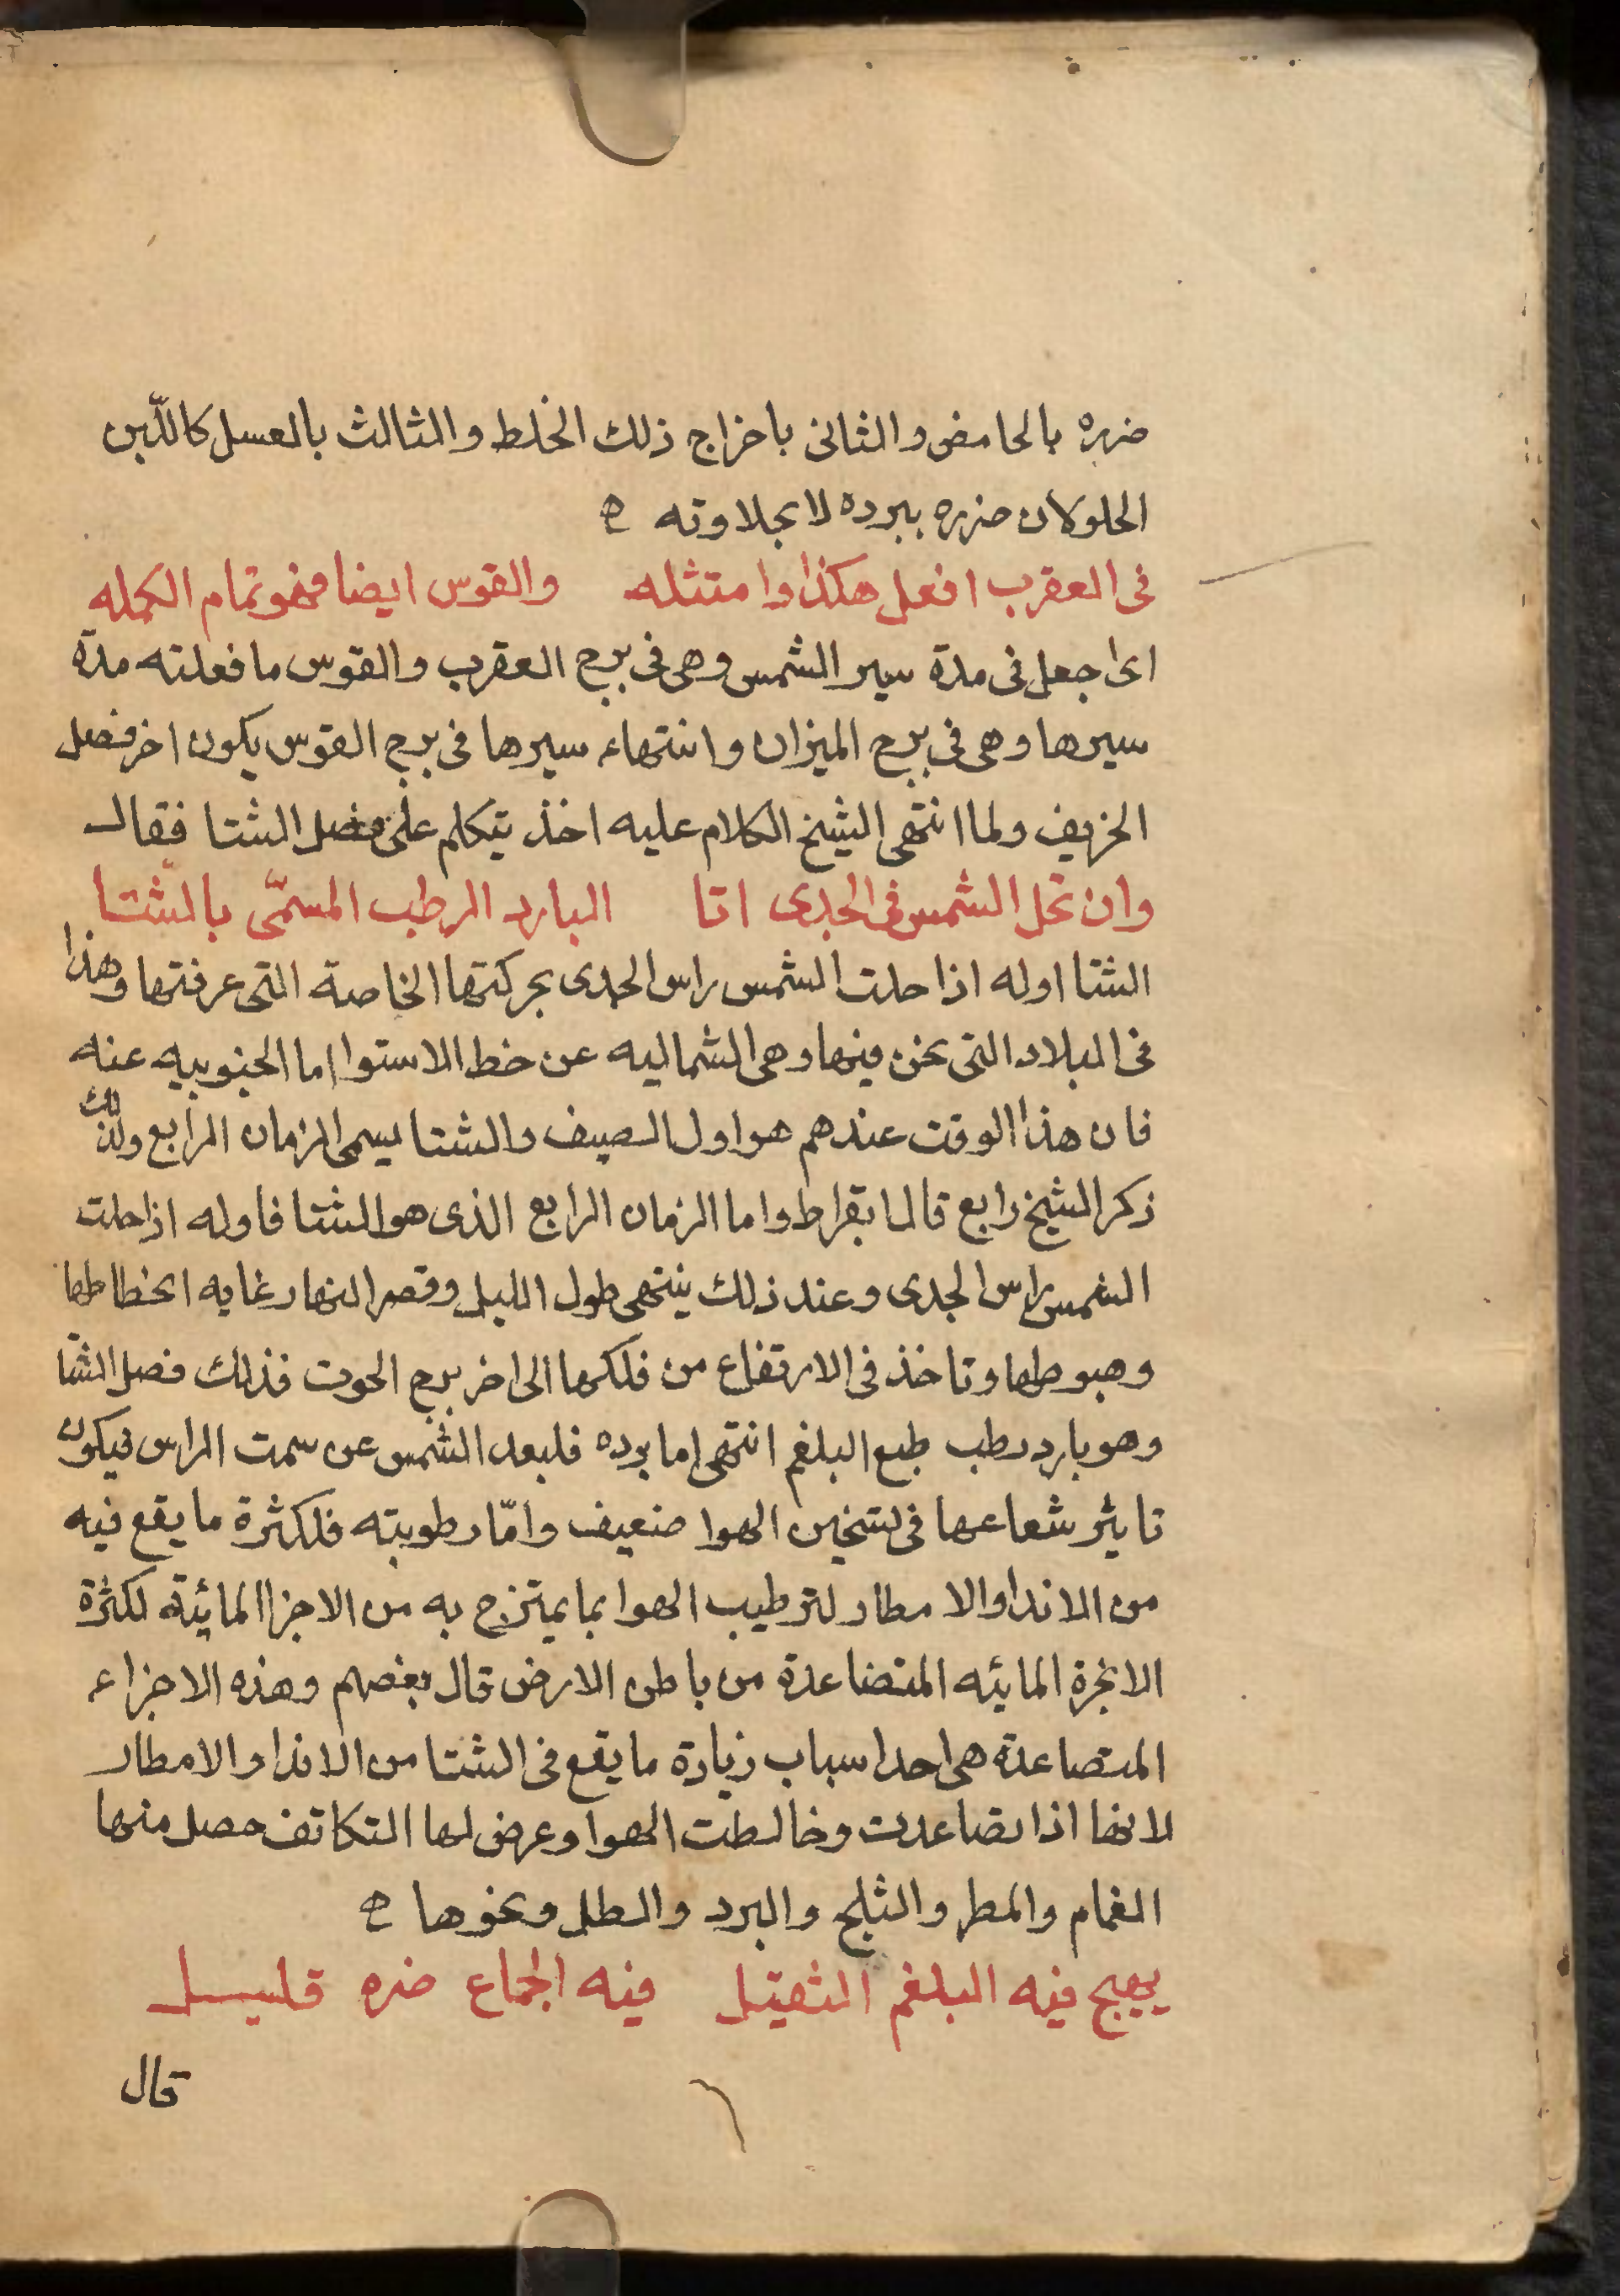 ضرره بالحامض والثانى باخراج ذلك الخلط والثالث بالعسل كاللّبن
الحلو لان ضرره ببرده لا بحلاوته ه
فى العقرب افعل هكذا وامتثله والقوس ايضا فهو تمام الكمله
اى اجعل فى مدة سير الشمس وهى فى برج العقرب والقوس ما فعلته مدة
سيرها وهى فى برج الميزان وانتهاء سيرها فى برج القوس يكون اخر فصل
الخريف ولما انتهى الشيخ الكلام عليه اخذ يتكلم على فصل الشتا فقال
وان تحل الشمس فى الجدى اتا البارد الرطب المسمّى بالشّتا
الشتا اوله اذا حلت الشمس راس الجدى بحركتها الخاصة التى عرفتها وهذا
فى البلاد التى نحن فيها وهى الشماليه عن خط الاستوا اما الجنوبيه عنه
فان هذا الوقت عندهم هو اول الصيف والشتا يسمى الزمان الرابع ولذلك
ذكر الشيخ رابع قال ابقراط واما الزمان الرابع الذى هو الشتا فاوله اذا حلت
الشمس راس الجدى وعند ذلك ينتهى طول الليل وقصر النهار غايه انحطاطها
وهبوطها وتاخذ فى الارتفاع من فلكها الى اخر برج الحوت فذلك فصل الشتا
وهو بارد رطب طبع البلغم انتهى اما برده فلبعد الشمس عن سمت الراس فيكون
تاثير شعاعها فى تسخين الهوا ضعيف وامّا رطوبته فلكثرة ما يقع فيه
من الاندا والامطار لترطيب الهوا بما يمتزج به من الاجزا المائية لكثرة
الابخرة المائيه المتضاعدة من باطن الارض قال بعضهم وهذه الاجزاء
المتصاعدة هى احد اسباب زيادة ما يقع فى الشتا من الاندا والامطار
لانها اذا تصاعدت وخالطت الهوا وعرض لها التكاثف حصل منها
الغمام والمطر والثلج والبرد والطل ونحوها ه
يهيج فيه البلغم الثقيل فيه الجماع ضره قليل
قال